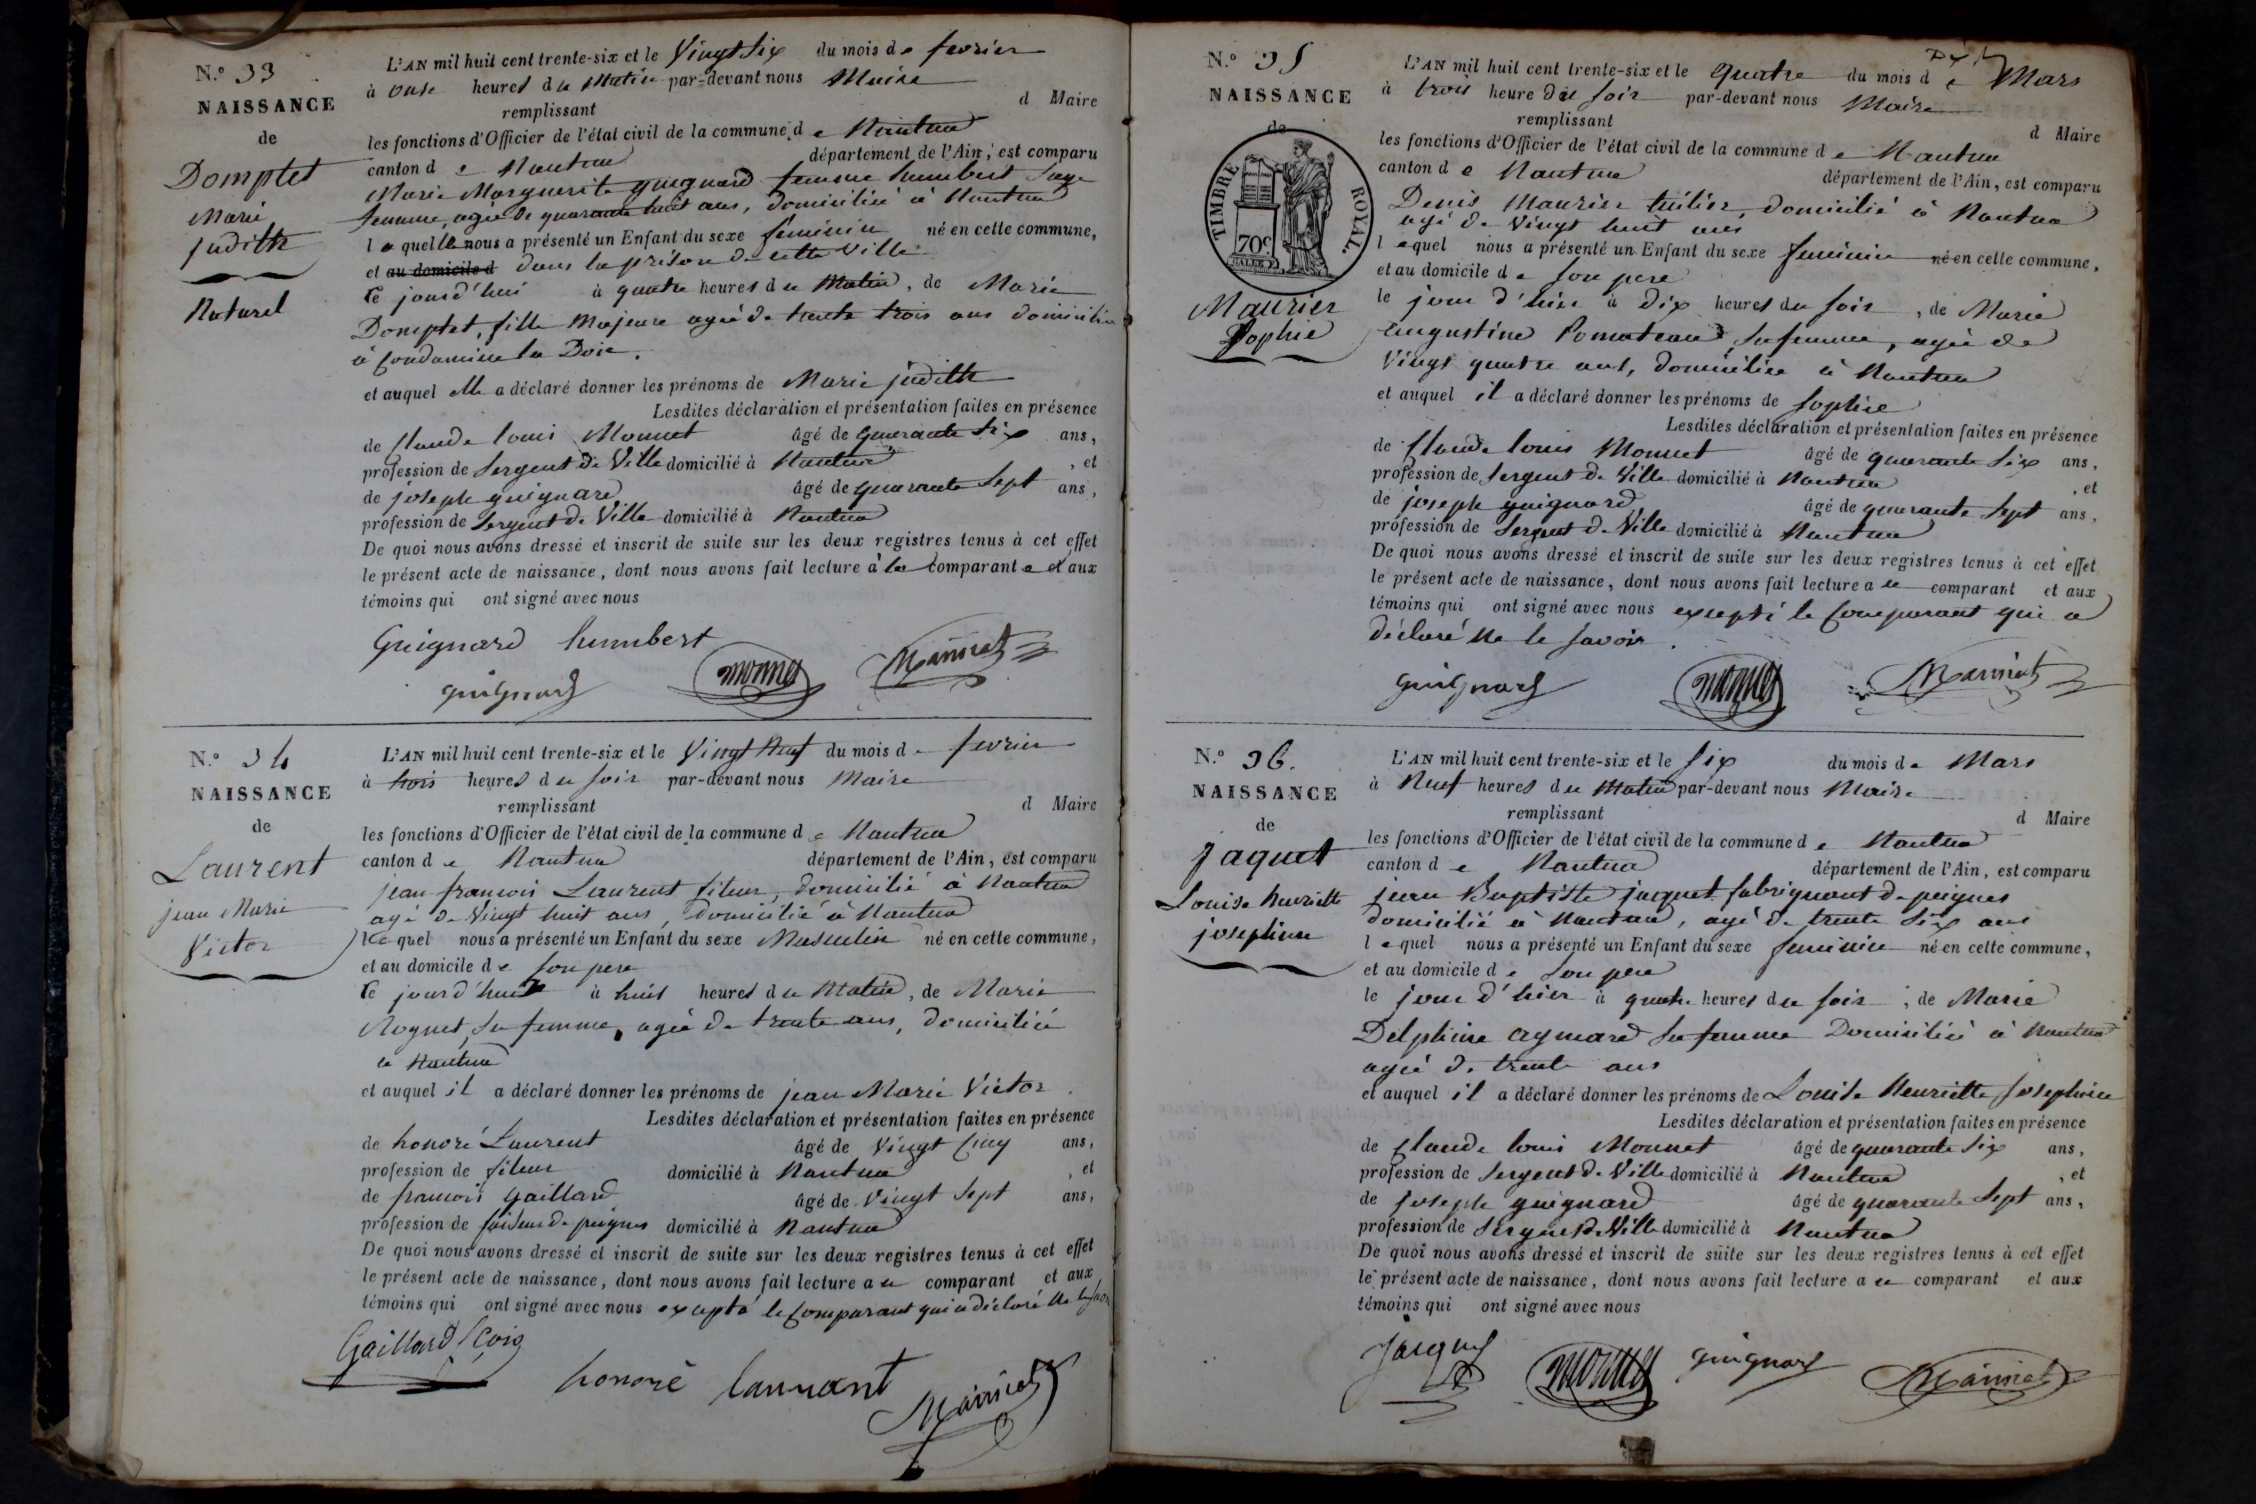 N.° 33
NAISSANCE
de
Domptet
Marie
Judith
Naturel
L'AN mil huit cent trente-six et le Vingt Six du mois de fevrier
à onse heures du Matin par-devant nous Maire
remplissant d Maire
les fonctions d'Officier de l'état civil de la commune de Nantua
canton de Nantua département de l'Ain, est comparu
Marie Marguerite guignard femme humbert Sage
femme, agée de quarante huit ans, domiciliée à Nantua
laquelle nous a présenté un Enfant du sexe feminin né en cette commune,
et au domicile d dans la prison de cette Ville
ce jourd'hui à quatre heures du Matin, de Marie
Domptet, fille Majeure agée de trente trois ans domiciliée
à Condamine la Doie.
et auquel elle a déclaré donner les prénoms de Marie judith
Lesdites déclaration et présentation faites en présence
de Claude louis Monnet âgé de quarante Six ans,
profession de Sergent de Ville domicilié à Nantua, et
de joseph guignard âgé de quarante Sept ans,
profession de Sergent de Ville domicilié à Nantua
De quoi nous avons dressé et inscrit de suite sur les deux registres tenus à cet effet
le présent acte de naissance, dont nous avons fait lecture à la comparante et aux
témoins qui ont signé avec nous
Guignard humbert
guignard monnet
N.° 34
NAISSANCE
de
Laurent
jean Marie
Victor
L'AN mil huit cent trente-six et le Vingt Neuf du mois de fevrier
à trois heures du soir par-devant nous Maire
remplissant d Maire
les fonctions d'Officier de l'état civil de la commune de Nantua
canton de Nantua département de l'Ain, est comparu
jean francois Laurent fileur, domicilié à Nantua
agé de Vingt huit ans, domicilié à Nantua
lequel nous a présenté un Enfant du sexe Masculin né en cette commune,
et au domicile de son pere
ce jourd'hui à huit heures du Matin, de Marie
Roguet, sa femme, agée de trente ans, domiciliée
à Nantua
et auquel il a déclaré donner les prénoms de jean Marie Victor
Lesdites déclaration et présentation faites en présence
de honoré Laurent âgé de Vingt Cinq ans,
profession de fileur domicilié à Nantua, et
de francois Gaillard âgé de Vingt Sept ans,
profession de faiseur de peignes domicilié à Nantua
De quoi nous avons dressé et inscrit de suite sur les deux registres tenus à cet effet
le présent acte de naissance, dont nous avons fait lecture au comparant et aux
témoins qui ont signé avec nous excepté le Comparant qui a déclaré ne le savoir
Gaillard
honoré laurant
N.° 35
NAISSANCE
de
TIMBRE ROYAL
70c
Maurier
Sophie
L'AN mil huit cent trente-six et le quatre du mois de Mars
à trois heure du soir par-devant nous Maire
remplissant d Maire
les fonctions d'Officier de l'état civil de la commune de Nantua
canton de Nantua département de l'Ain, est comparu
Denis Maurier tuilier, domicilié à Nantua
agé de Vingt huit ans
lequel nous a présenté un Enfant du sexe feminin né en cette commune,
et au domicile de son pere
le jour d'hier à dix heures du soir, de Marie
augustine Pomateau, sa femme, agée de
Vingt quatre ans, domiciliée à Nantua
et auquel il a déclaré donner les prénoms de Sophie
Lesdites déclaration et présentation faites en présence
de Claude louis Monnet âgé de quarante Six ans,
profession de Sergent de Ville domicilié à Nantua, et
de joseph guignard âgé de quarante Sept ans,
profession de Sergent de Ville domicilié à Nantua
De quoi nous avons dressé et inscrit de suite sur les deux registres tenus à cet effet
le présent acte de naissance, dont nous avons fait lecture au comparant et aux
témoins qui ont signé avec nous excepté le Comparant qui a
déclaré ne le savoir.
guignard monnet
N.° 36.
NAISSANCE
de
Jaquet
Louise henriette
josephine
L'AN mil huit cent trente-six et le six du mois de Mars
à Neuf heures du Matin par-devant nous Maire
remplissant d Maire
les fonctions d'Officier de l'état civil de la commune de Nantua
canton de Nantua département de l'Ain, est comparu
jean Baptiste jacquet fabriquant de peignes
domicilié à Nantua, agé de trente six ans
lequel nous a présenté un Enfant du sexe feminin né en cette commune,
et au domicile de son pere
le jour d'hier à quatre heures du soir, de Marie
Delphine aymard sa femme Domiciliée à Nantua
agée de trente ans
et auquel il a déclaré donner les prénoms de Louise Henriette Josephine
Lesdites déclaration et présentation faites en présence
de Claude louis Monnet âgé de quarante Six ans,
profession de Sergent de Ville domicilié à Nantua, et
de joseph guignard âgé de quarante Sept ans,
profession de Sergent de Ville domicilié à Nantua
De quoi nous avons dressé et inscrit de suite sur les deux registres tenus à cet effet
le présent acte de naissance, dont nous avons fait lecture au comparant et aux
témoins qui ont signé avec nous
monnet guignard